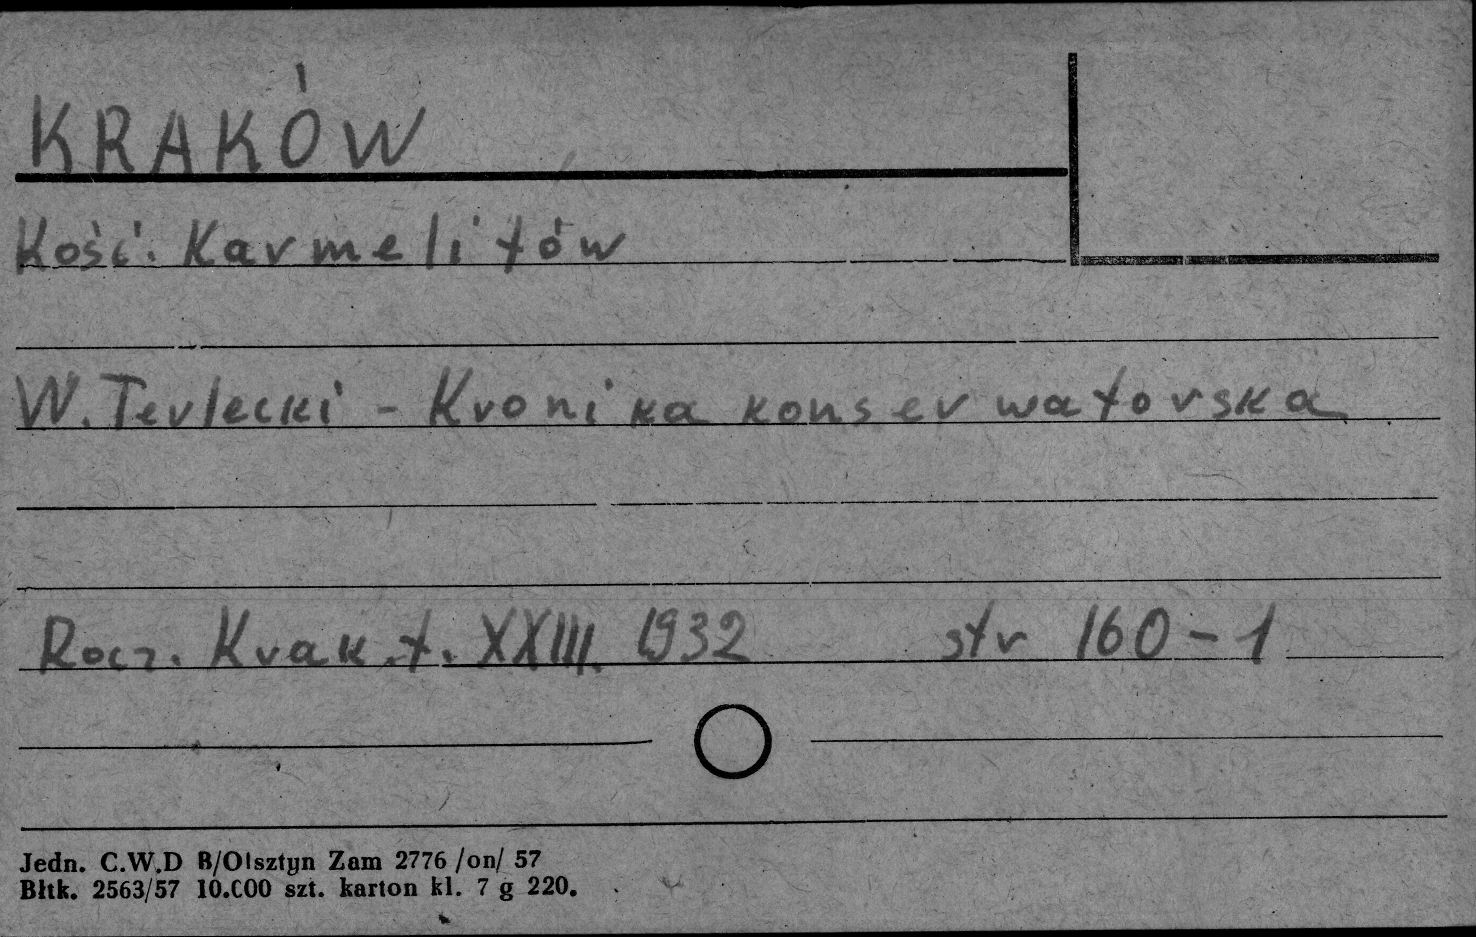 KRAKÓW
Kość. Karmelitów
W. Terlecki - Kronika konserwatorska
Rocz. Krak. t. XXIII. 1932 str 160-1
Jedn. C.W.D B/Olsztyn Zam 2776 /on/ 57
Błtk. 2563/57 10.000 szt. karton kl. 7 g 220.